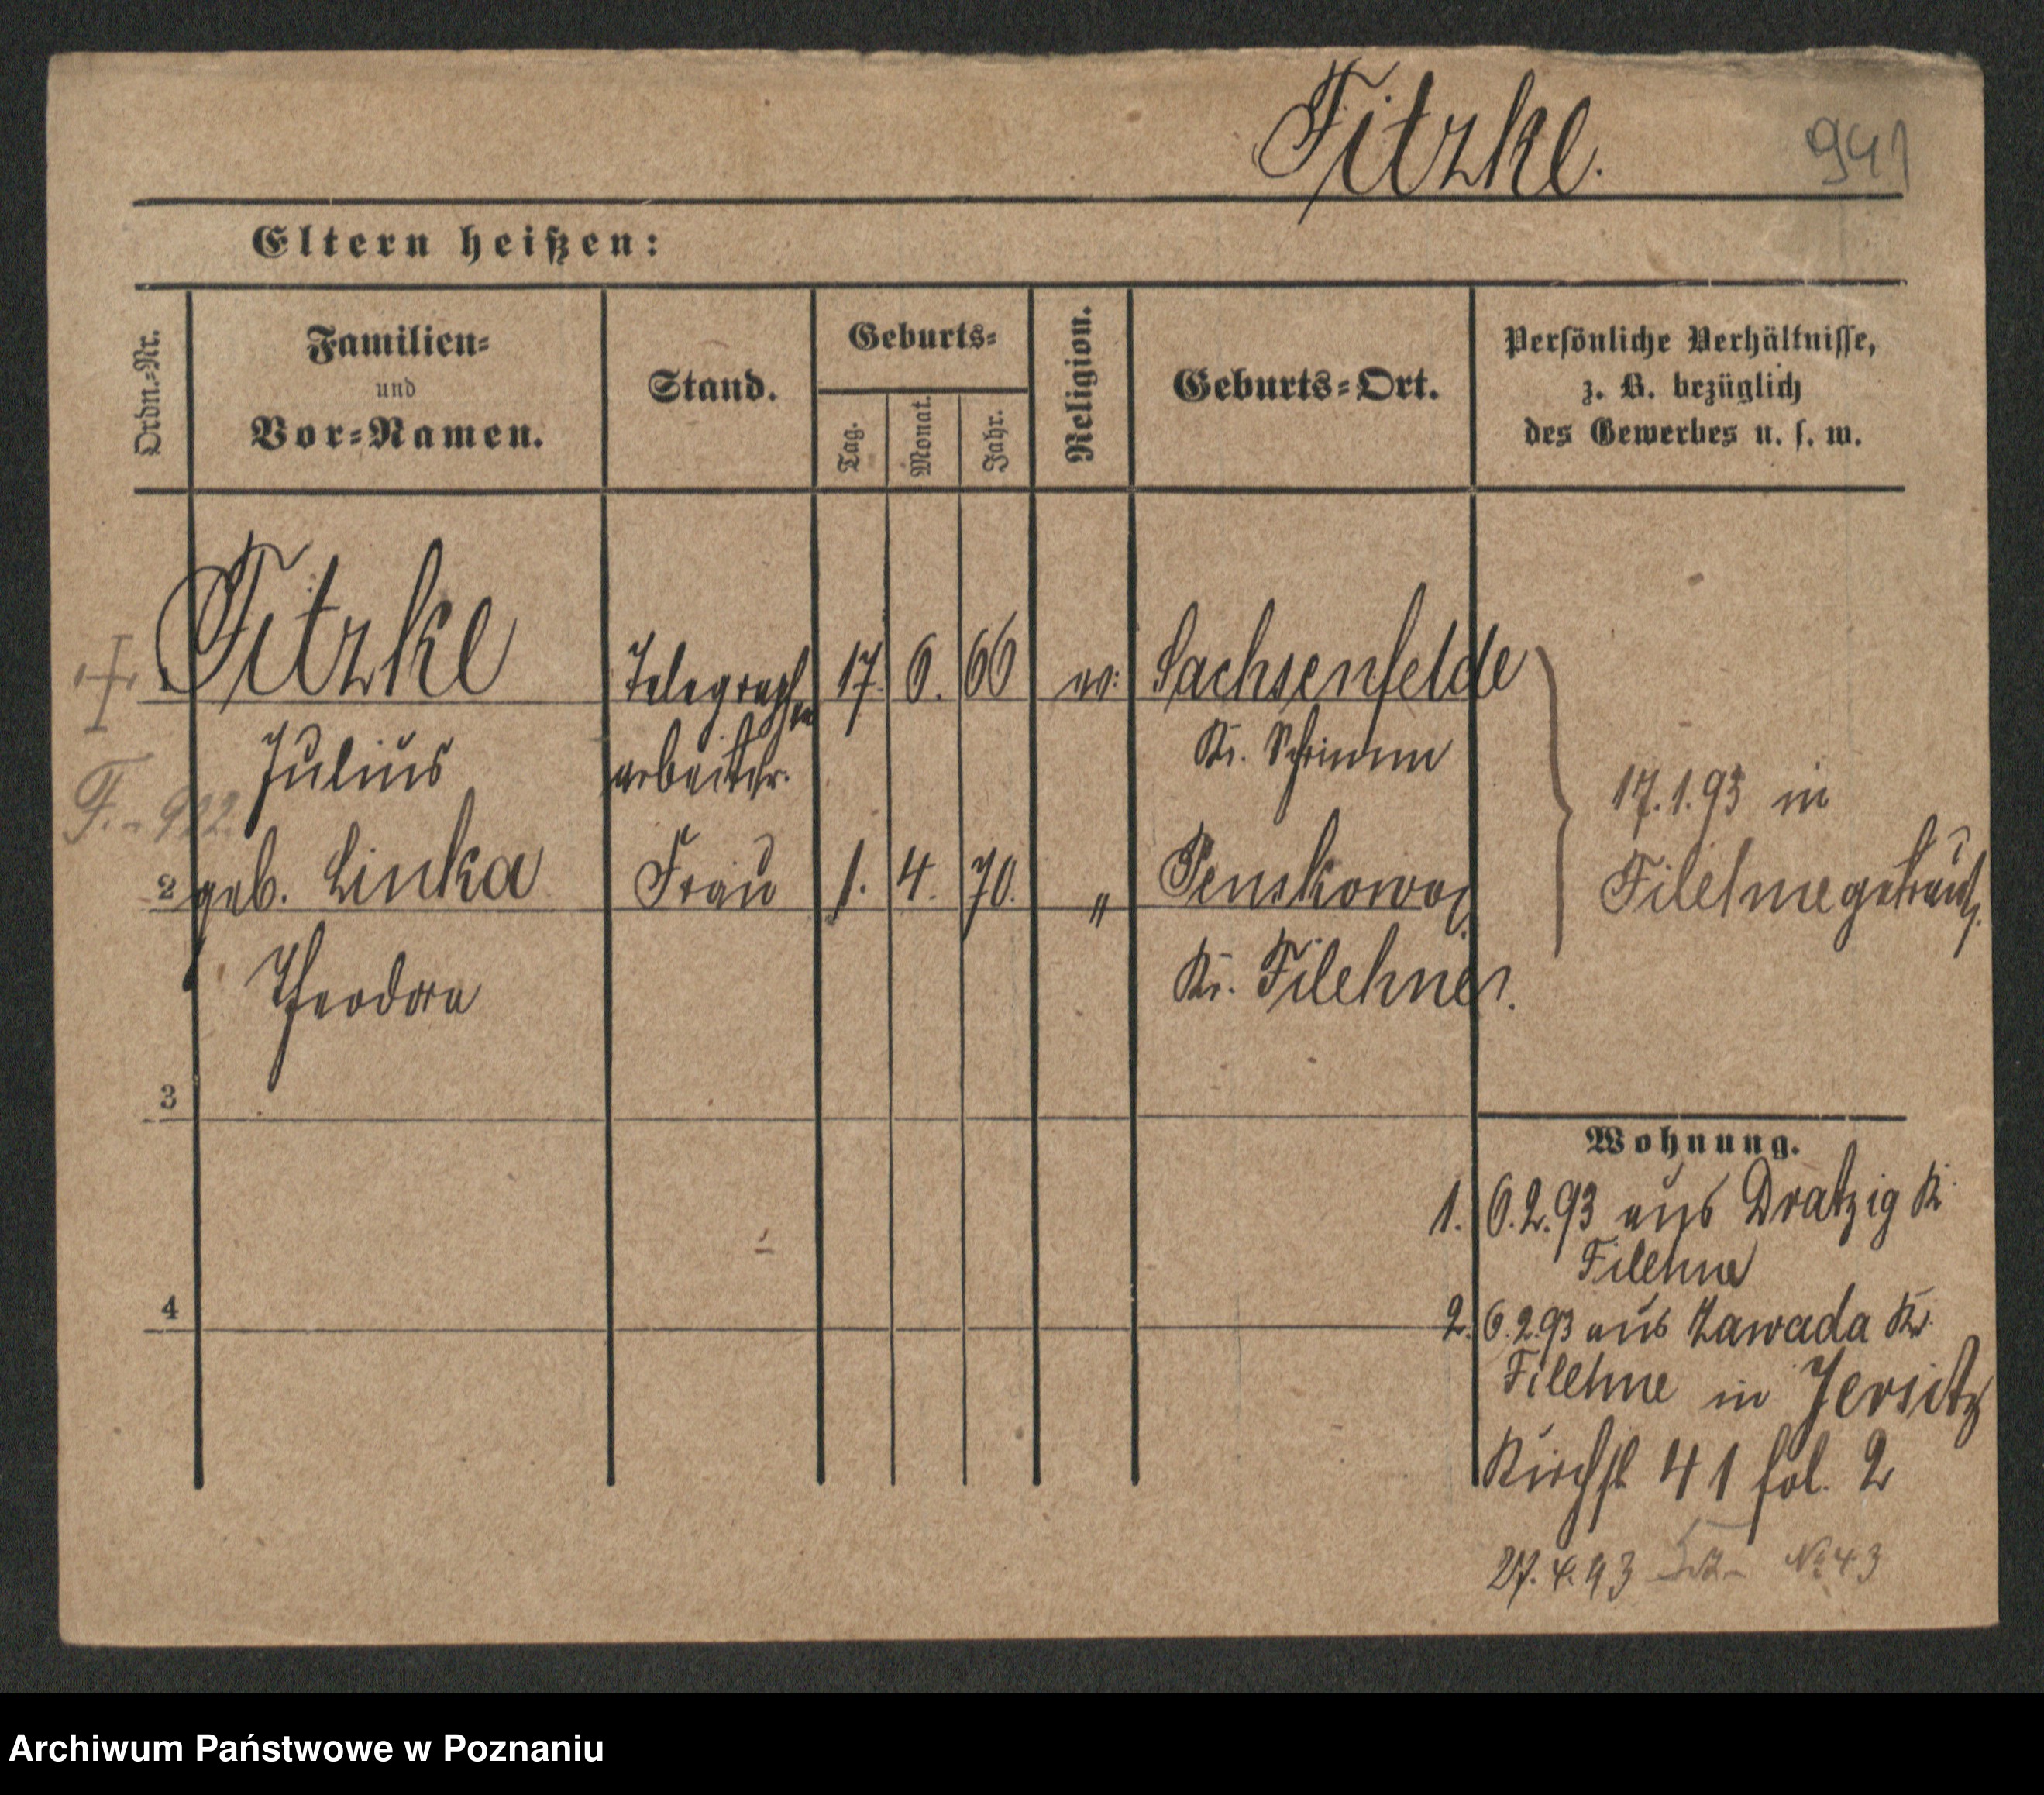 Fitzke.
941
Eltern heißen:
Ordn.=Nr.
Familien=
und
Vor=Namen.
Stand.
Geburts=
Tag.
Monat.
Jahr.
Religion.
Geburts=Ort.
Persönliche Verhältnisse,
z. B. bezüglich
des Gewerbes u. s. w.
Fitzke Telegraphen 17. 6. 66 ev: Sachsenfelde
Julius arbeiter. Kr. Schrimm
17.1.93 in
F. - 922.
2 geb. Linka Frau 1. 4. 70. " Penskowo Filehne getraut.
Theodora Kr. Filehne.
3
Wohnung.
1. 6.2.93 aus Dratzig Kr.
Filehne
4
2. 6.2.93 aus Zawada Kr.
Filehne in Jersitz
Kirchst 41 fol. 2
27.4.93 No 43
Archiwum Państwowe w Poznaniu